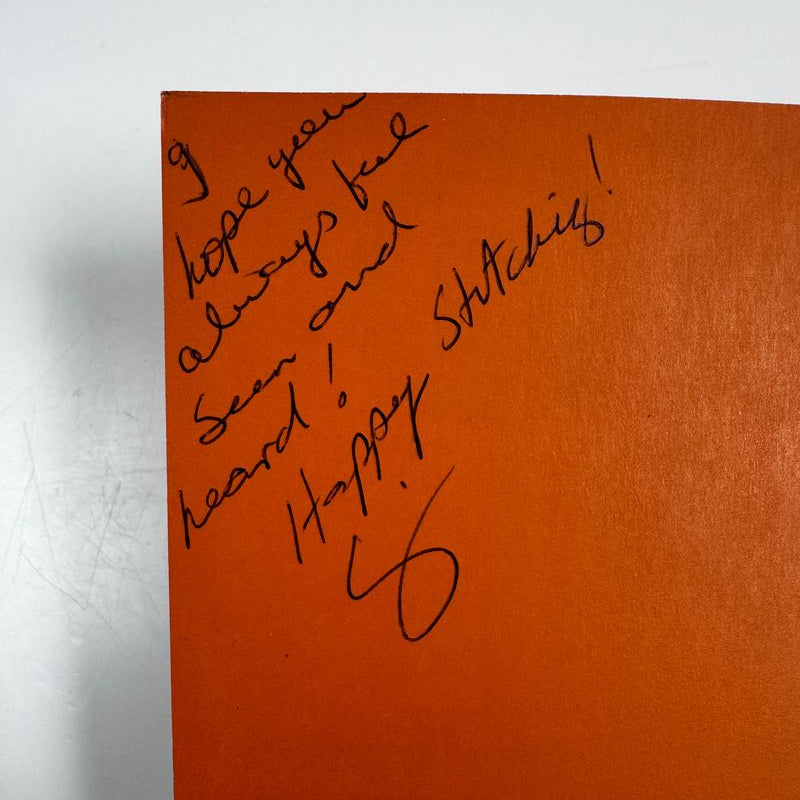 I
hope you
always feel
seen and
heard!
Happy Stitching!